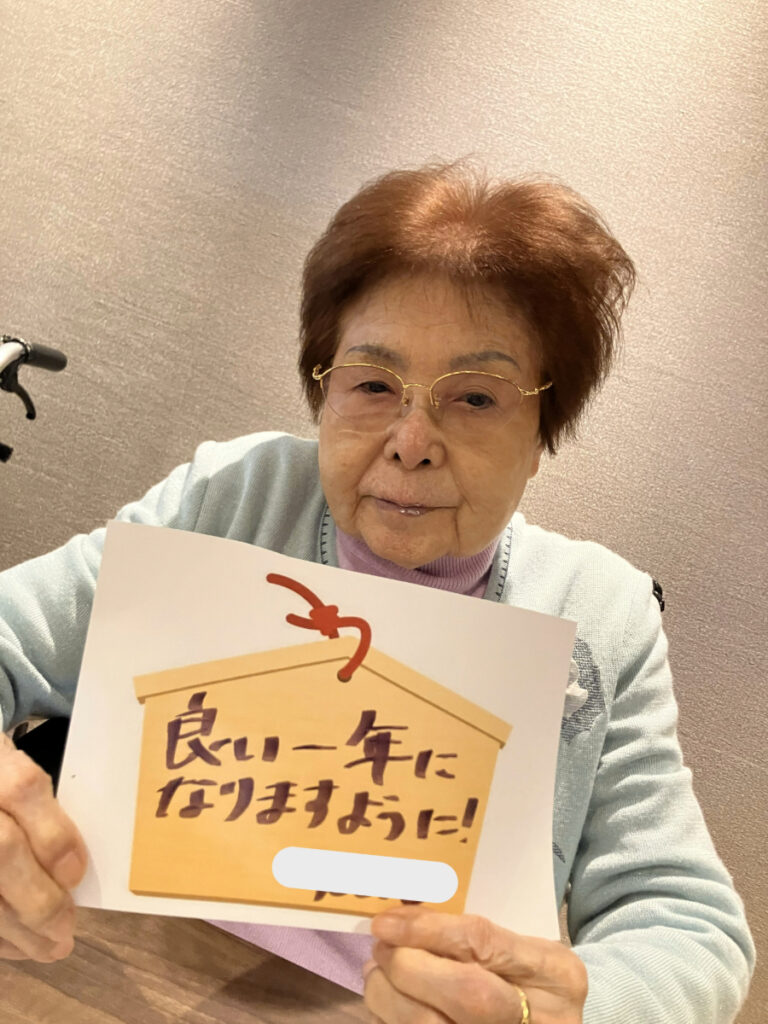 良い一年に
なりますように!